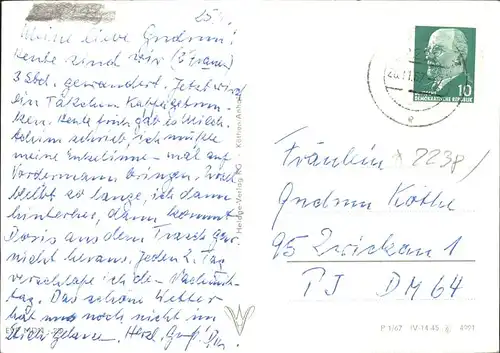 253
Meine liebe Gudrun!
Heute sind wir (2 Frauen)
3 Std. gewandert. Jetzt wird
ein Täßchen Kaffee getrun-
ken. Heute früh gab es Milch.
Achim schrieb, ich müßte
meine Enkelinne - mal auf
Vordermann bringen.
bleibt so lange, ich dann
hinterher, dann kommt
Doris aus dem Tratsch gar
nicht heraus. Jeden 2. Tag
verschlafe ich de - Nachmit-
tag. Das schöne Wetter
hat uns noch nicht im
Stich gelassen. Herzl.
Herldge-Verlag KG Köthen-Anhalt
10
DEMOKRATISCHE REPUBLIK
Fräulein * 2238/
Gudrun Köthe
95 Zwickau 1
PJ DM 64
P 1/67 IV-14-45 4291